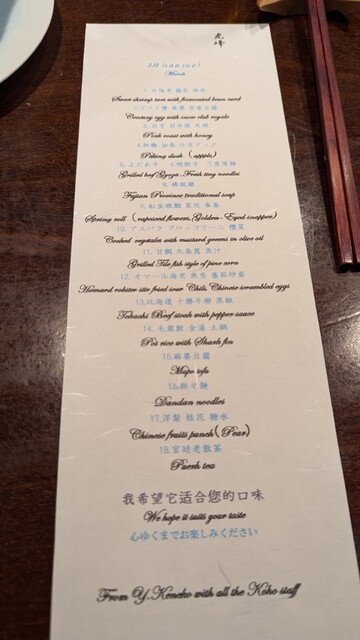 虎峰
3月 (sān yuè)
March
Sweet shrimp tart with fermented bean curd
Century egg with snow club royale
Pork roast with honey
Peking duck (apple)
Grilled beef Gyoza . Fresh tiny noodles
8. 佛跳牆
Fujian Province traditional soup
Spring roll (rapeseed flowers, Golden-Eyed snapper)
10. アスパラ ブロッコリーニ 欖菜
Cooked vegetales with mustard greens in olive oil
11. 甘鯛 九条葱 魚汁
Grilled Tile fish style of pine corn
12. オマール海老 魚香 蕃茄炒蛋
Homard robster stir fried sour Chili, Chinese scrambled eggs
13. 北海道 十勝牛柳 黒椒
Tokachi Beef steak with pepper sauce
14. 毛鹿鮫 金湯 土鍋
Pot rice with Shark fin
15. 麻婆豆腐
Mapo tofu
16. 担々麺
Dandan noodles
17. 洋梨 桂花 糖水
Chinese fruits punch (Pear)
18. 宮廷老散茶
Puerh tea
我希望它适合您的口味
We hope it suits your taste
心ゆくまでお楽しみください
From Y.Keneko with all the Koho staff